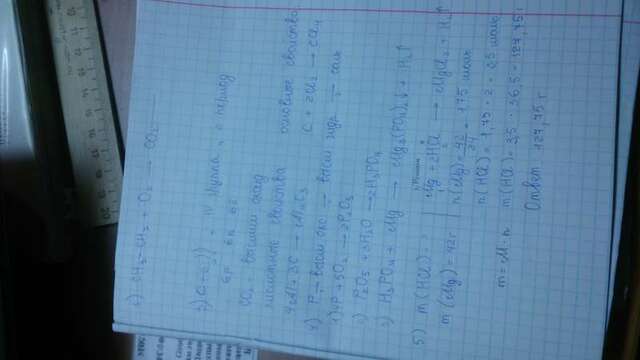 2) CH3-CH3 + O2 → CO2
3) C
IV группа, 2 период
6p 6n 6e
CO2 - высший оксид
кислотные свойства
основные свойства
4Al + 3C → Al4C3
C + 2Cl2 → CCl4
4) P → высш окс → высш гидр → соль
1) 4P + 5O2 → 2P2O5
2) P2O5 + 3H2O → 2H3PO4
3) H3PO4 + Mg → Mg3(PO4)2↓ + H2↑
5) m(HCl) - ?
m(Mg) = 42г
Mg + 2HCl → MgCl2 + H2↑
1 2
n(Mg) = 42/24 = 1,75 моль
n(HCl) = 1,75 · 2 = 3,5 моль
m = M · n
m(HCl) = 3,5 · 36,5 = 127,75
Ответ: 127,75 г
20 19 18 17 16 15 14